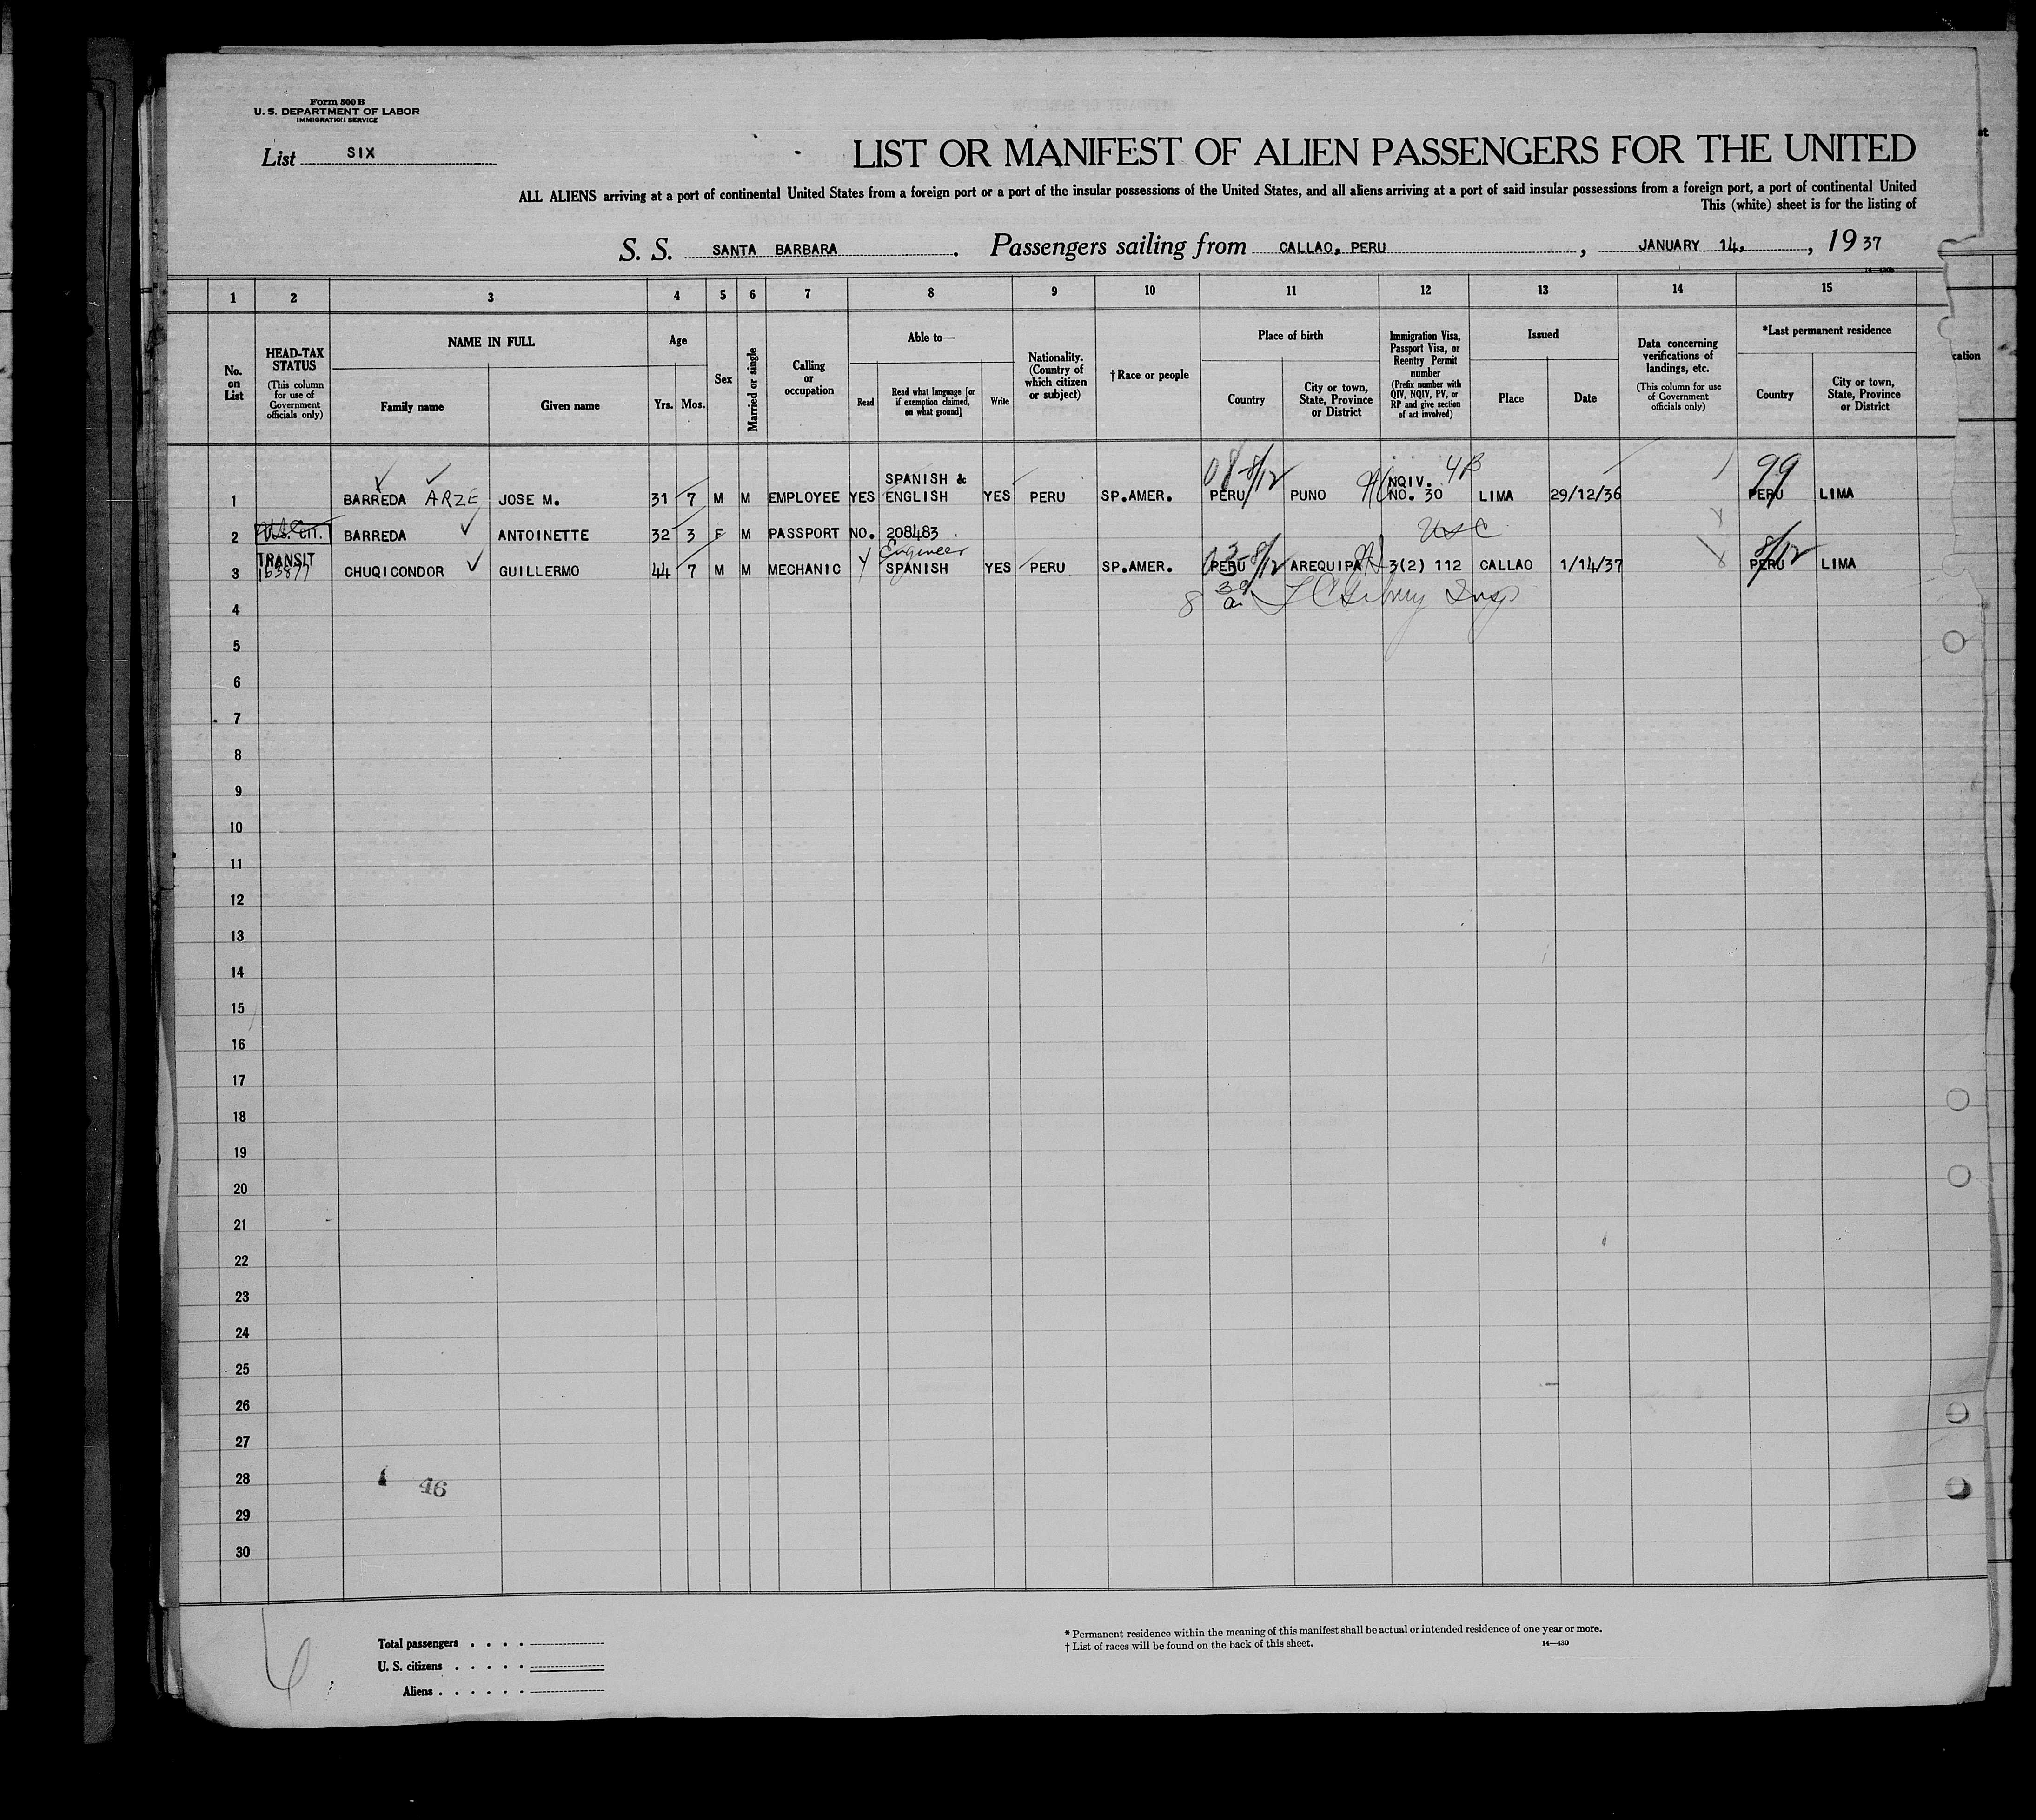 Form 500 B
U. S. DEPARTMENT OF LABOR
IMMIGRATION SERVICE
List SIX
LIST OR MANIFEST OF ALIEN PASSENGERS FOR THE UNITED
ALL ALIENS arriving at a port of continental United States from a foreign port or a port of the insular possessions of the United States, and all aliens arriving at a port of said insular possessions from a foreign port, a port of continental United
This (white) sheet is for the listing of
S. S. SANTA BARBARA. Passengers sailing from CALLAO, PERU, JANUARY 14, 1937
1 2 3 4 5 6 7 8 9 10 11 12 13 14 15
No. on List
HEAD-TAX STATUS
(This column for use of Government officials only)
NAME IN FULL
Family name
Given name
Age
Yrs. Mos.
Sex
Married or single
Calling or occupation
Able to—
Read
Read what language [or if exemption claimed, on what ground]
Write
Nationality. (Country of which citizen or subject)
† Race or people
Place of birth
Country
City or town, State, Province or District
Immigration Visa, Passport Visa, or Reentry Permit number
(Prefix number with QIV, NQIV, PV, or RP and give section of act involved)
Issued
Place
Date
Data concerning verifications of landings, etc.
(This column for use of Government officials only)
*Last permanent residence
Country
City or town, State, Province or District
cation
08-8/12 4B 99
SPANISH & NQIV.
1 BARREDA ARZE JOSE M. 31 7 M M EMPLOYEE YES ENGLISH YES PERU SP.AMER. PERU PUNO NO. 30 LIMA 29/12/36 PERU LIMA
2 U.S. CIT. BARREDA ANTOINETTE 32 3 F M PASSPORT NO. 208483 USC
TRANSIT Engineer 8/12 8/12
3 163877 CHUQICONDOR GUILLERMO 44 7 M M MECHANIC Y SPANISH YES PERU SP.AMER. PERU AREQUIPA 3(2) 112 CALLAO 1/14/37 PERU LIMA
4
5
6
7
8
9
10
11
12
13
14
15
16
17
18
19
20
21
22
23
24
25
26
27
28
46
29
30
Total passengers . . . .
U. S. citizens . . . . .
Aliens . . . . . .
* Permanent residence within the meaning of this manifest shall be actual or intended residence of one year or more.
† List of races will be found on the back of this sheet. 14—430